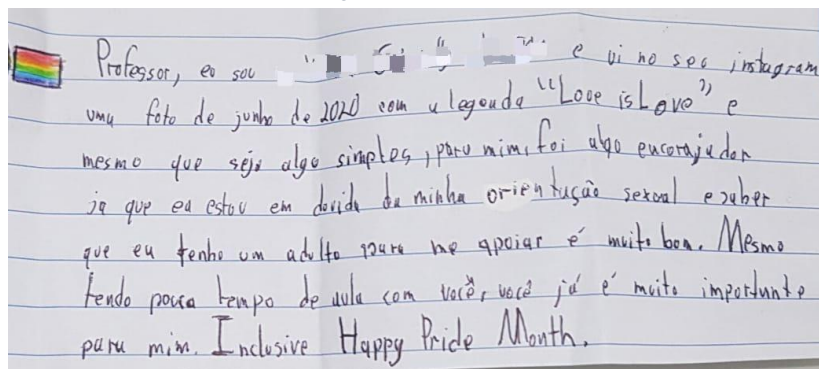 Professor, eu sou e vi no seu instagram
uma foto de junho de 2020 com a legenda "Love is Love" e
mesmo que seja algo simples, para mim, foi algo encorajador
ja que eu estou em dovida da minha orientação sexual e saber
que eu tenho um adulto para me apoiar é muito bom. Mesmo
tendo pouco tempo de aula com você, você já é muito importante
para mim. Inclusive Happy Pride Month.